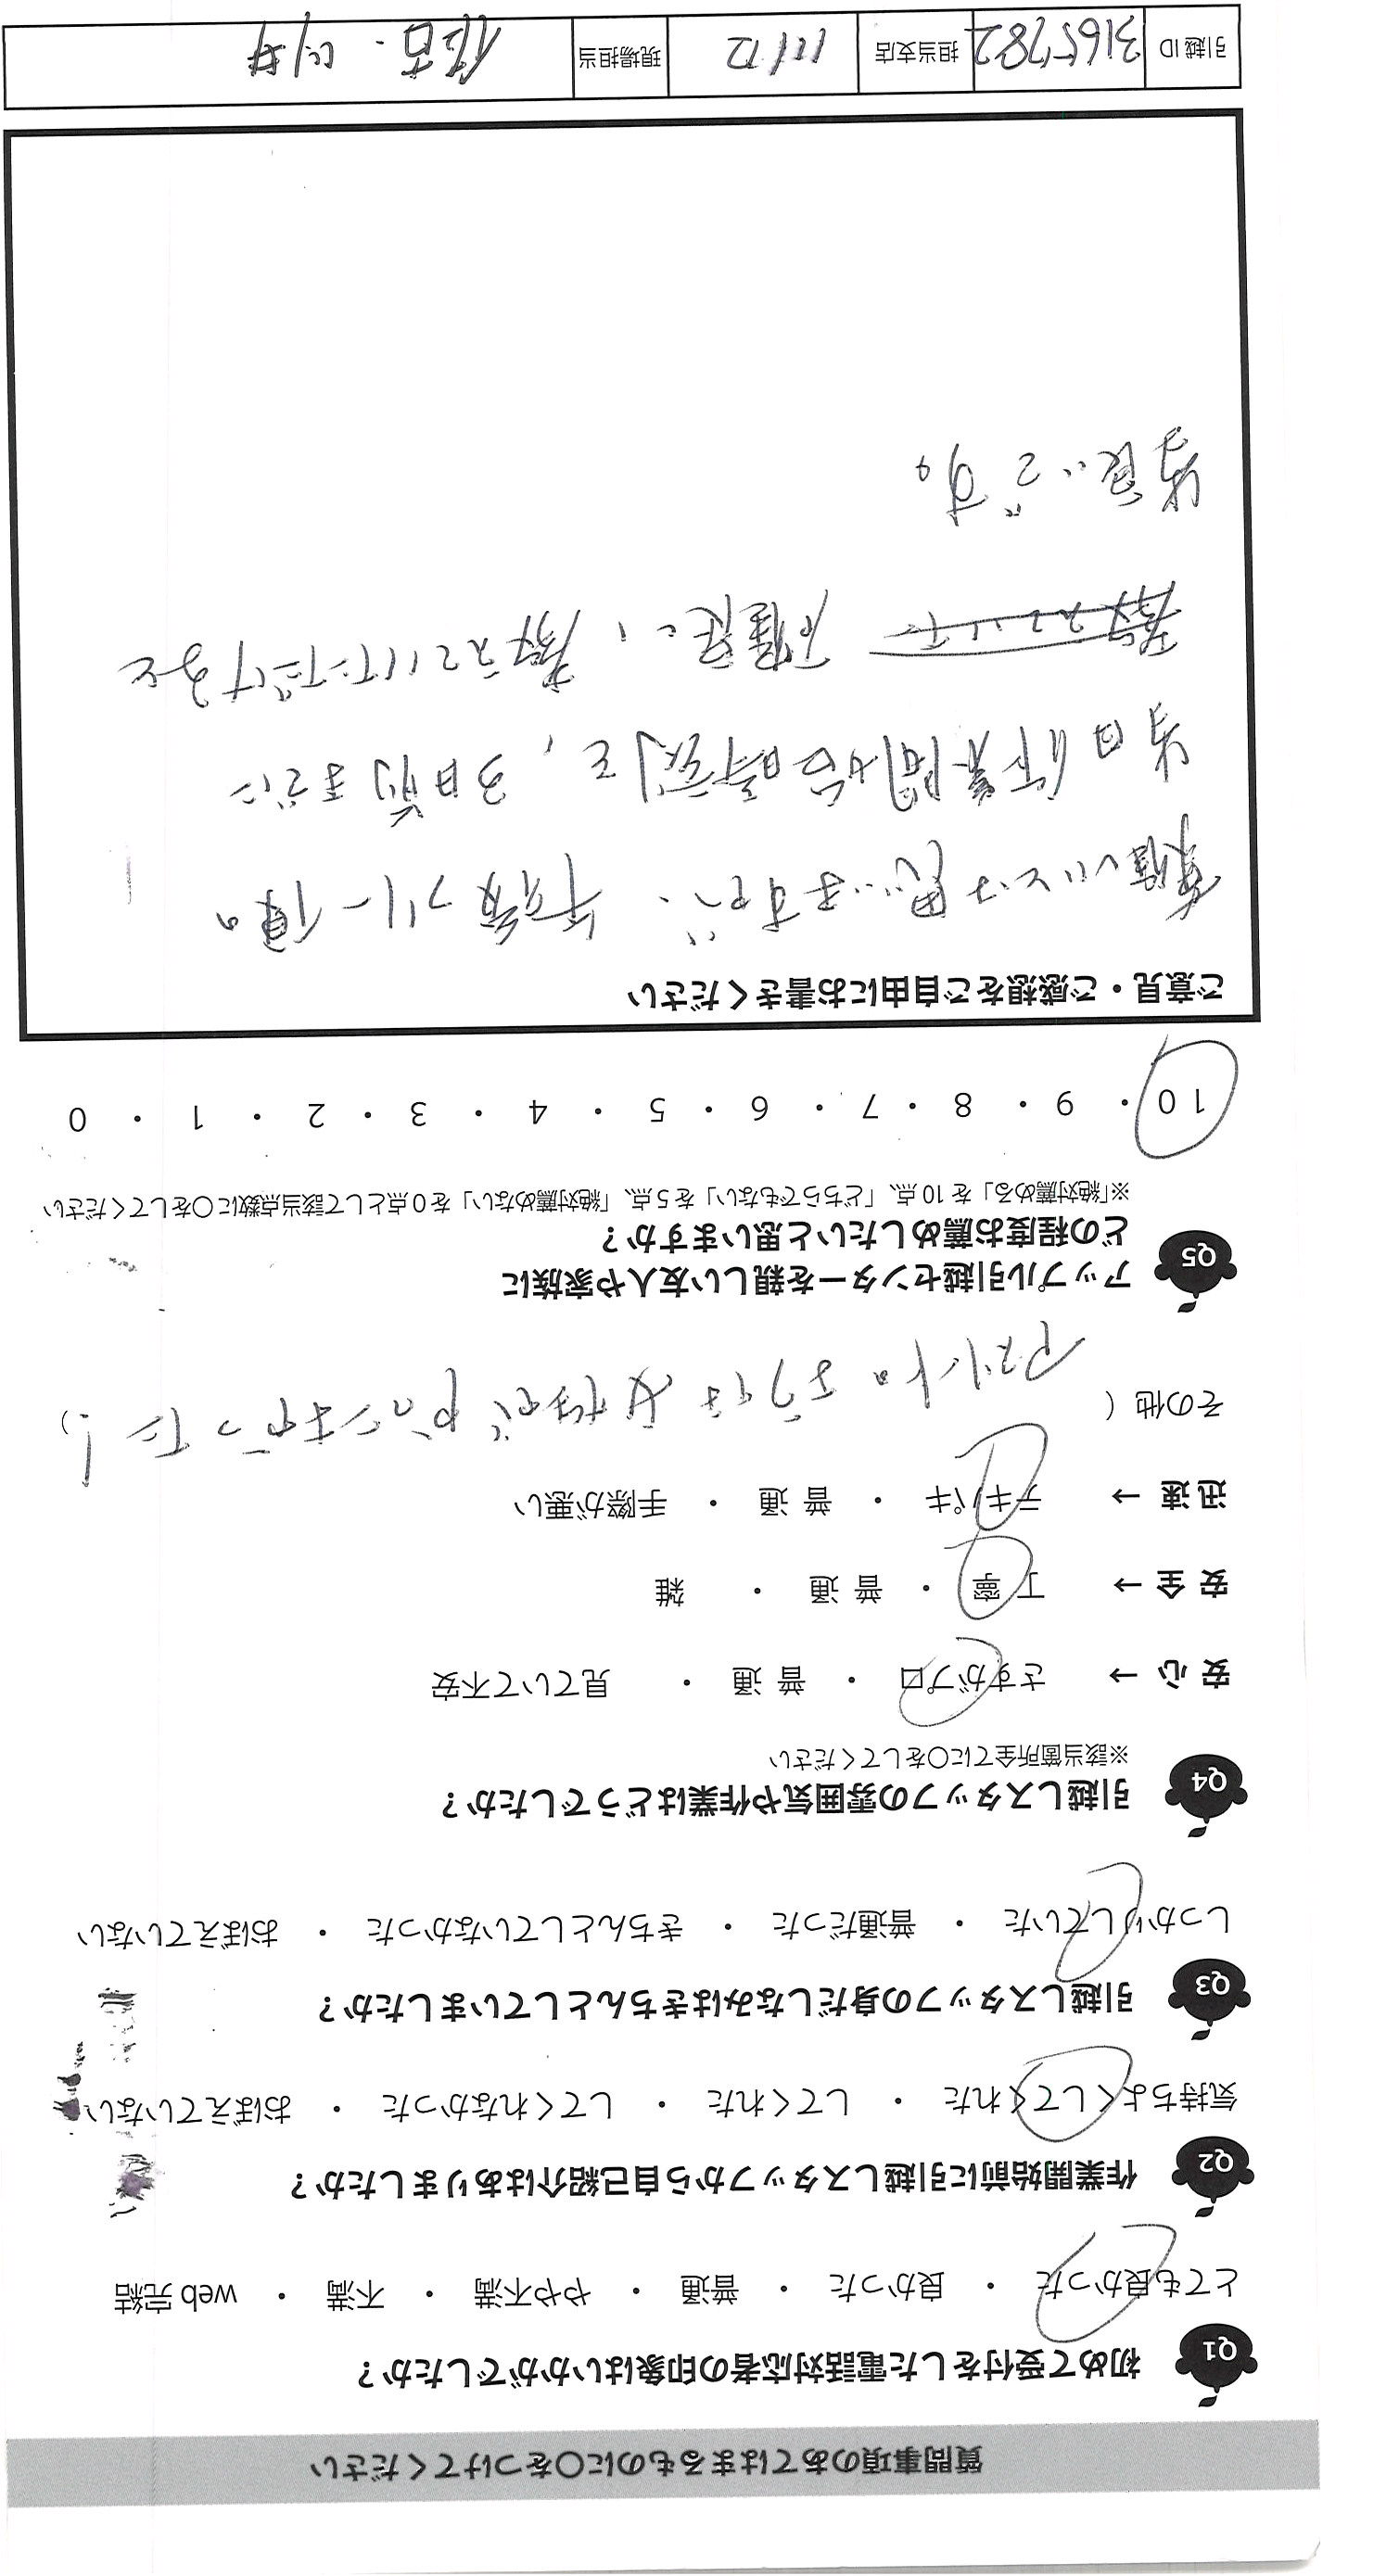 質問事項のあてはまるものに○をつけてください
Q1 初めて受付をした電話対応者の印象はいかがでしたか？
とても良かった ・ 良かった ・ 普通 ・ やや不満 ・ 不満 ・ web 完結
Q2 作業開始前に引越しスタッフから自己紹介はありましたか？
気持ちよくしてくれた ・ してくれた ・ してくれなかった ・ おぼえていない
Q3 引越しスタッフの身だしなみはきちんとしていましたか？
しっかりしていた ・ 普通だった ・ きちんとしていなかった ・ おぼえていない
Q4 引越しスタッフの雰囲気や作業はどうでしたか？
※該当箇所全てに○をしてください
安 心 → さすがプロ ・ 普 通 ・ 見ていて不安
安 全 → 丁 寧 ・ 普 通 ・ 雑
迅 速 → テキパキ ・ 普 通 ・ 手際が悪い
その他（ アスリートの 方は 女性が）
Q5 アップル引越センターを親しい友人や家族に
どの程度お薦めしたいと思いますか？
※「絶対薦める」を 10 点、「どちらでもない」を 5 点、「絶対薦めない」を 0 点として該当点数に○をしてください
10 ・ 9 ・ 8 ・ 7 ・ 6 ・ 5 ・ 4 ・ 3 ・ 2 ・ 1 ・ 0
ご意見・ご感想をご自由にお書きください
難しいとは思いますが、午後フリー便の
当日作業開始時刻を、3日前までに
確定し、教えていただけると
尚良いです。
引越 ID 3165782 担当支店 現場担当 住吉・